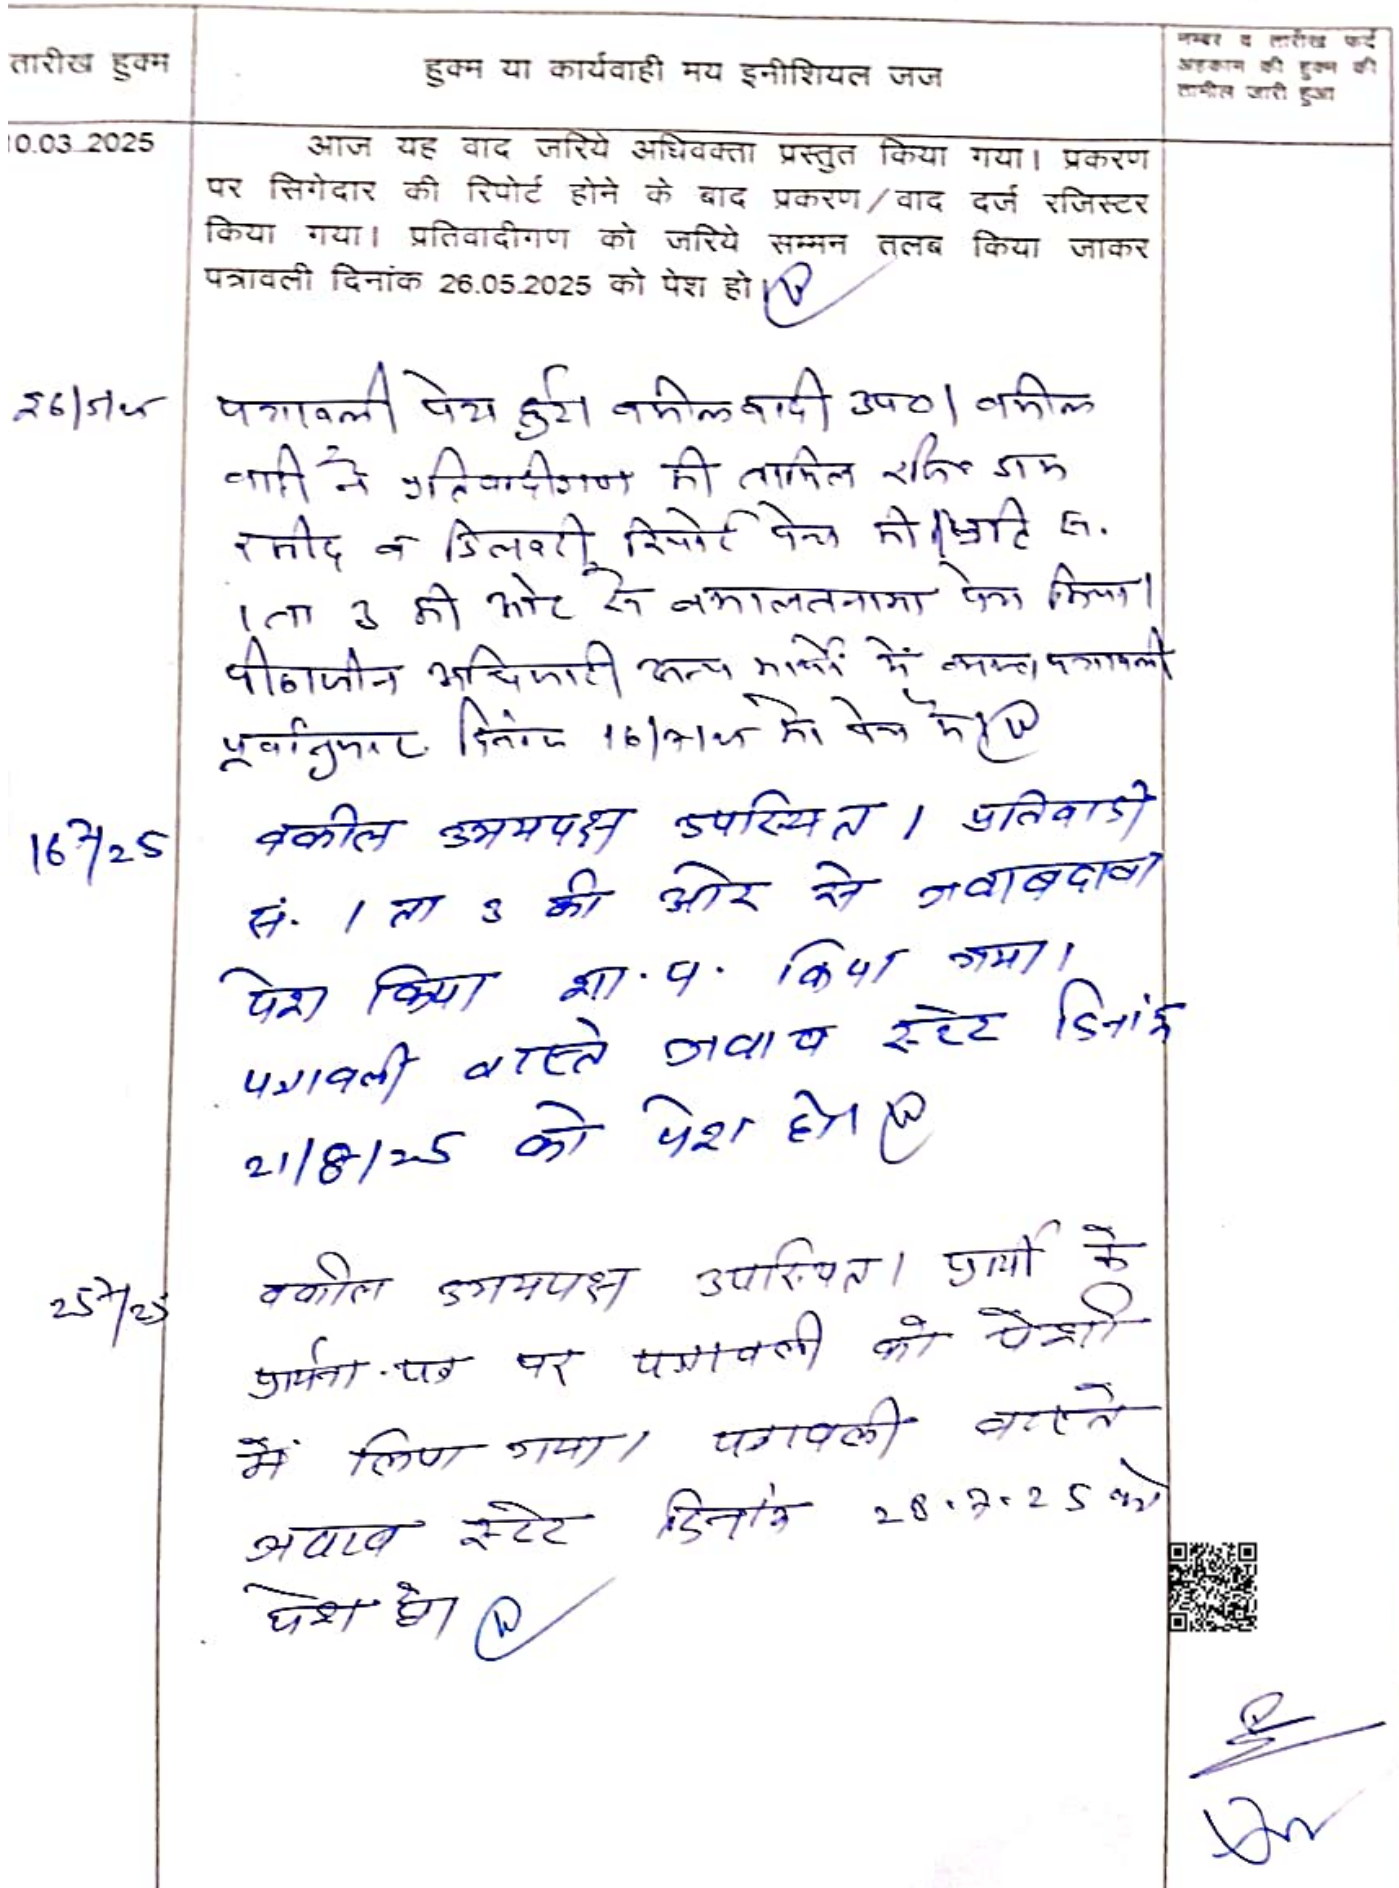 तारीख हुक्म
हुक्म या कार्यवाही मय इनीशियल जज
नम्बर व तारीख फर्द
अहकाम की हुक्म की
तामील जारी हुआ
0.03.2025
आज यह वाद जरिये अधिवक्ता प्रस्तुत किया गया। प्रकरण
पर सिगेदार की रिपोर्ट होने के बाद प्रकरण/वाद दर्ज रजिस्टर
किया गया। प्रतिवादीगण को जरिये सम्मन तलब किया जाकर
पत्रावली दिनांक 26.05.2025 को पेश हो।
26/5/25
पत्रावली पेश हुई। वकील वादी उप०। वकील
वादी ने प्रतिवादीगण की तामिल रजि० डाक
रसीद व डिलवरी रिपोर्ट पेश की। प्रति सं.
1 ता 3 की ओर से वकालतनामा पेश किया।
पीठासीन अधिकारी अन्य कार्यों में व्यस्त। पत्रावली
पूर्वानुसार दिनांक 16/7/25 को पेश हो।
16/7/25
वकील उभयपक्ष उपस्थित। प्रतिवादी
सं. 1 ता 3 की ओर से जवाबदावा
पेश किया शा.प. किया गया।
पत्रावली वास्ते जवाब स्टेट दिनांक
21/8/25 को पेश हो।
25/7/25
वकील उभयपक्ष उपस्थित। प्रार्थी के
प्रार्थना-पत्र पर पत्रावली को पेशी
में लिया गया। पत्रावली वास्ते
जवाब स्टेट दिनांक 28.7.25 को
पेश हो।